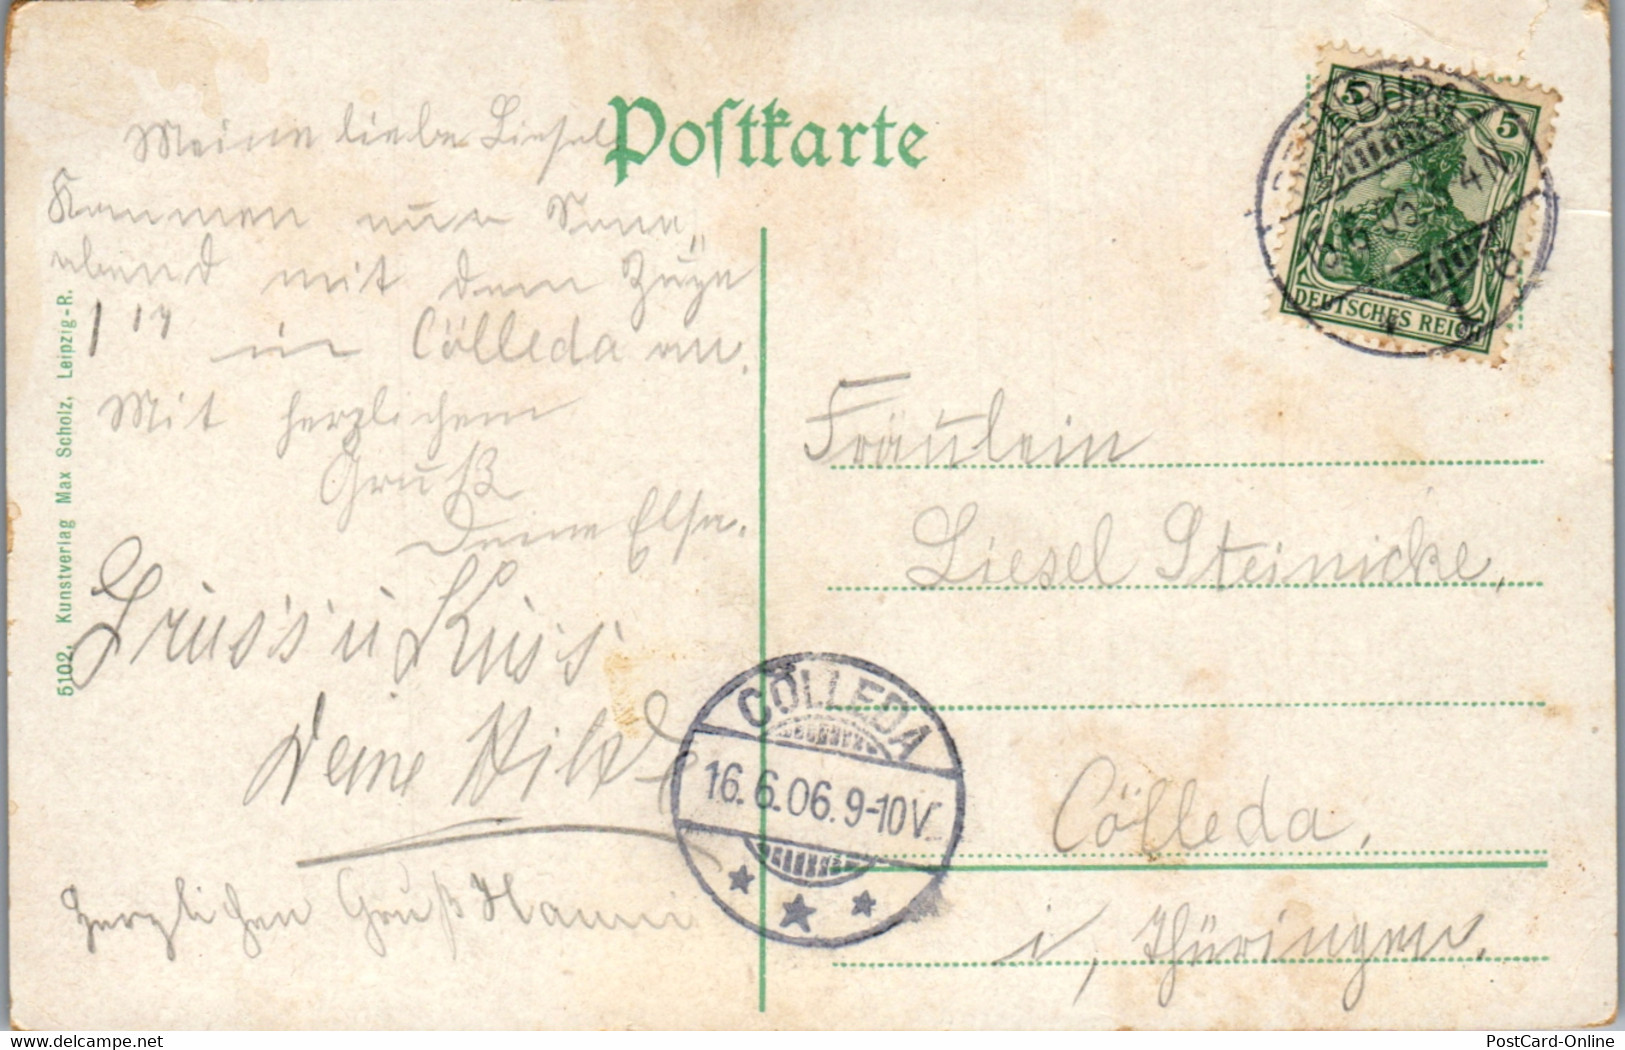 Postkarte
Meine liebe Liesel
Kommen nur Sonn„
abend mit dem Zuge
1 14 in Cölleda an.
Mit herzlichem
Gruß
Deine Elsa.
Gruss u Kuss
Deine Hilde
Herzlichen Gruß Hanni
5102, Kunstverlag Max Scholz, Leipzig-R.
5 5
DEUTSCHES REICH
4N
Fräulein
Liesel Steinicke,
Cölleda,
i, Thüringen.
CÖLLEDA
16.6.06.9-10V.
www.delcampe.net
PostCard-Online